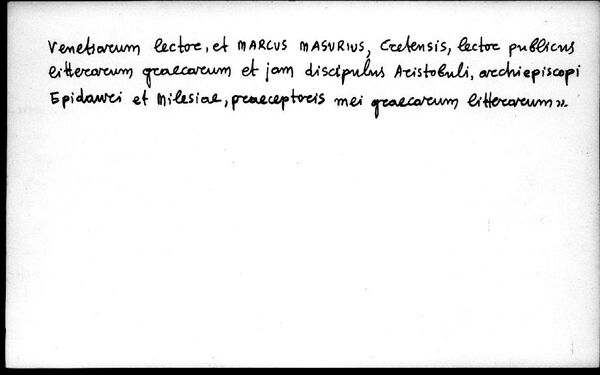 Venetiarum lector, et MARCUS MASURIUS, Cretensis, lector publicus
litterarum graecarum et jam discipulus Aristobuli, archiepiscopi
Epidauri et Milesiae, praeceptoris mei graecarum litterarum».